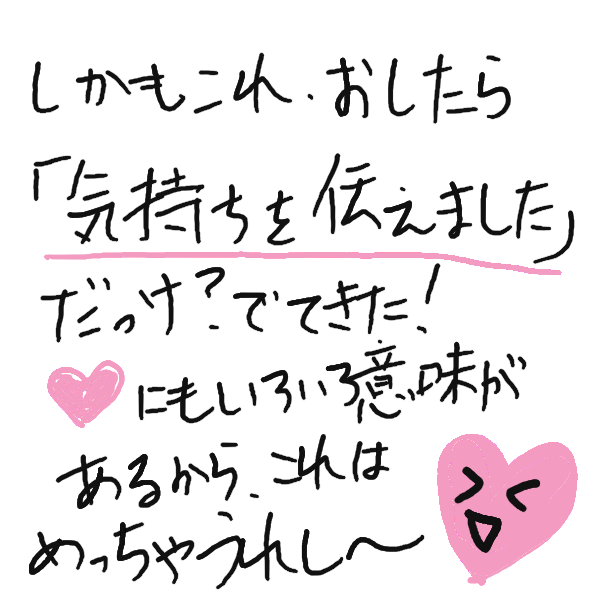 しかもこれ、おしたら
「気持ちを伝えました」
だっけ?でてきた!
にもいろいろ意味が
あるから、これは
めっちゃうれし〜